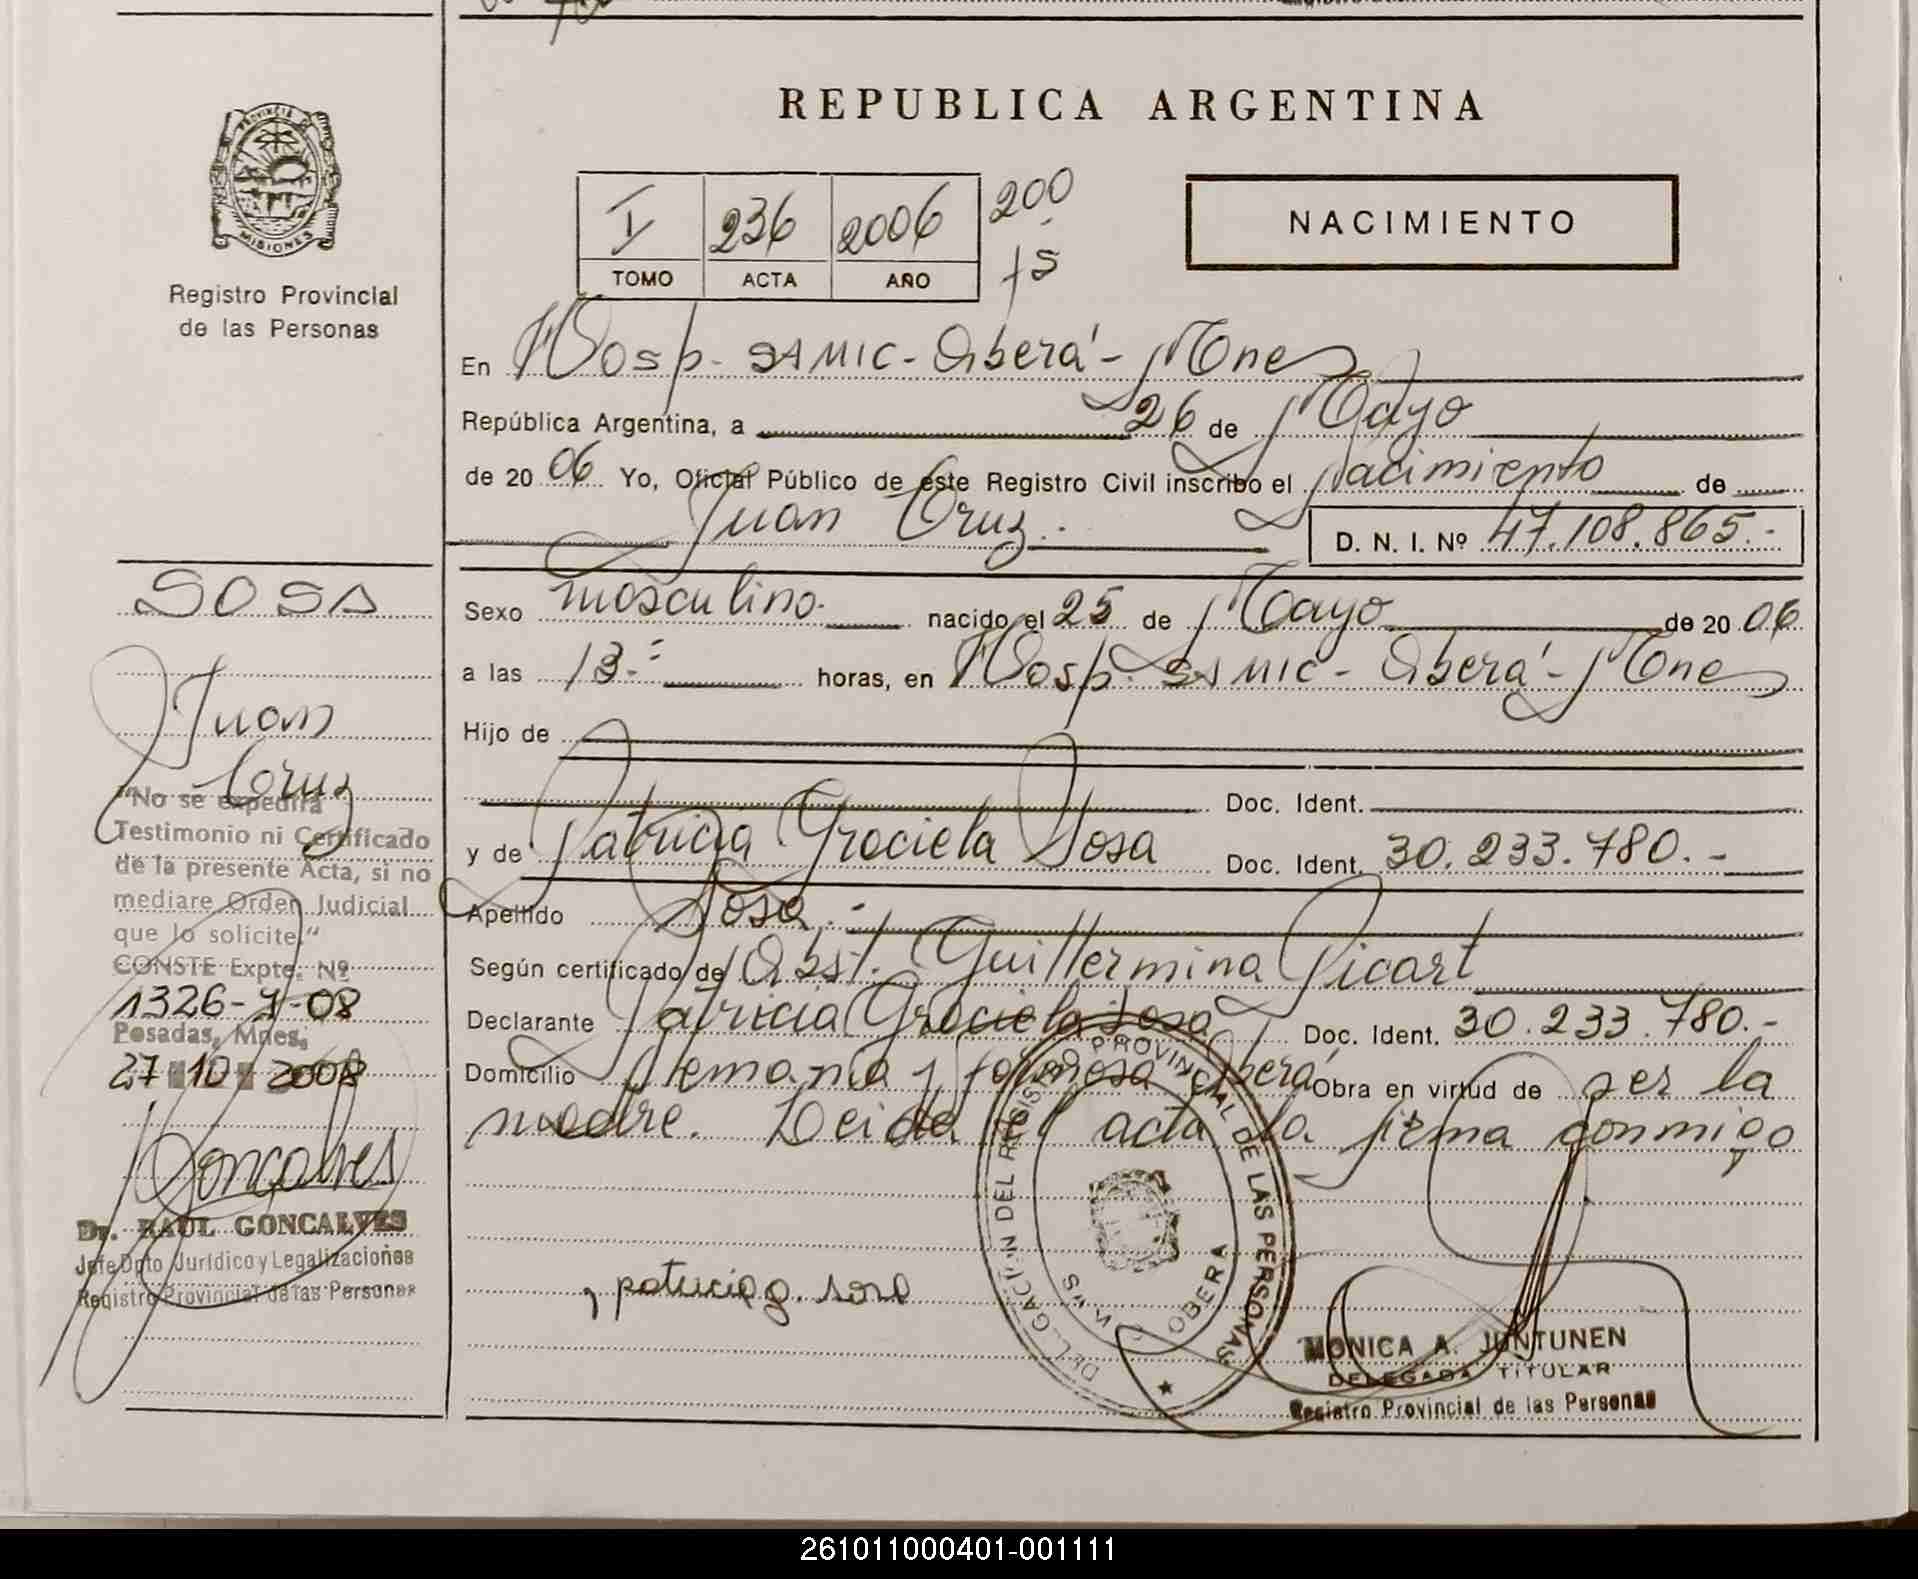 REPUBLICA ARGENTINA
PROVINCIA DE
MISIONES
Registro Provincial
de las Personas
I 236 2006 200
TOMO ACTA AÑO
NACIMIENTO
En Hosp. SAMIC - Oberá - Mnes
República Argentina, a 26 de Mayo
de 20 06 Yo, Oficial Público de este Registro Civil inscribo el Nacimiento de
Juan Cruz.
D. N. I. Nº 47.108.865.-
Sexo masculino. nacido el 25 de Mayo de 20 06
a las 13.- horas, en Hosp. SAMIC - Oberá - Mnes
Hijo de
Doc. Ident.
y de Patricia Graciela Sosa Doc. Ident. 30.233.780.-
Apellido Sosa.-
Según certificado de Obst. Guillermina Picart
Declarante Patricia Graciela Sosa Doc. Ident. 30.233.780.-
Domicilio Alemania y Formosa Oberá Obra en virtud de ser la
madre. Leida el acta la firma conmigo
patricia g. sosa
DELEGACION DEL REGISTRO PROVINCIAL DE LAS PERSONAS
OBERA
MONICA A. JUNTUNEN
DELEGADA TITULAR
Registro Provincial de las Personas
SOSA
Juan
Cruz
"No se expedirá
Testimonio ni Certificado
de la presente Acta, si no
mediare Orden Judicial
que lo solicite."
CONSTE Expte. Nº
1326-J-08
Posadas, Mnes,
27 10 2008
Goncalves
Dr. RAUL GONCALVES
Jefe Dpto Jurídico y Legalizaciones
Registro Provincial de las Personas
261011000401-001111